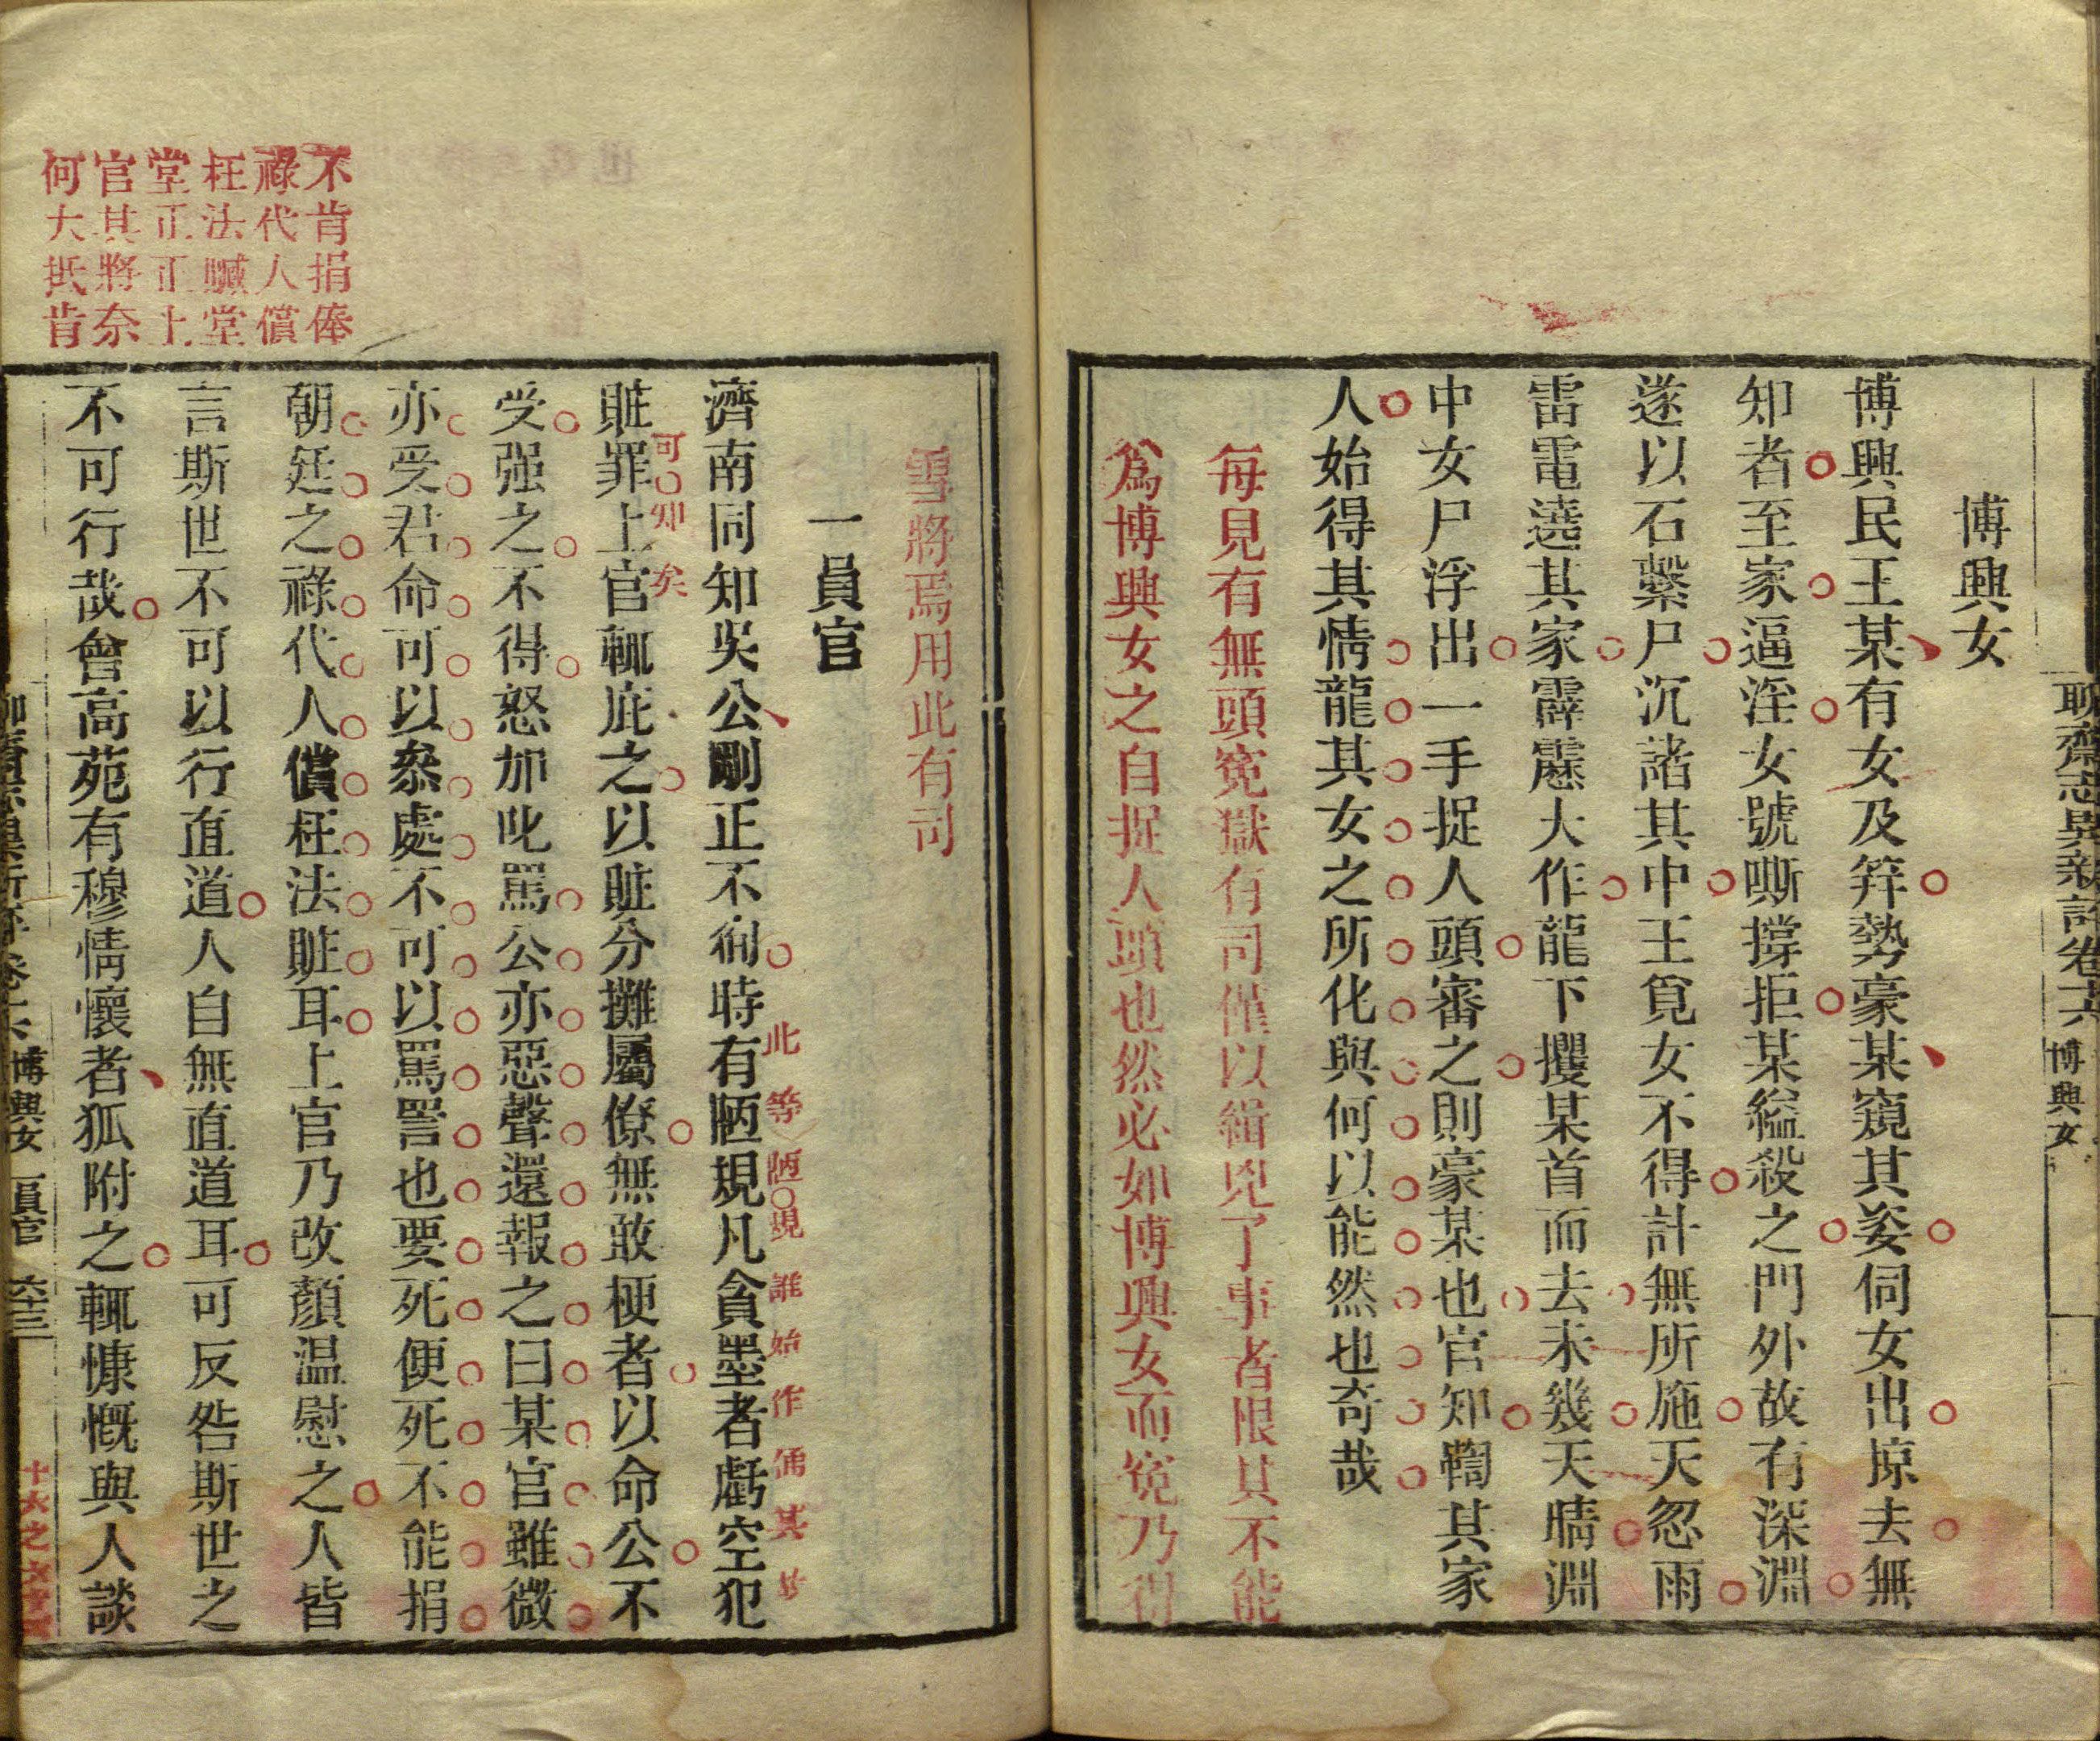 聊齋志異新評卷十六
博興女
博興女
博興民王某有女及笄勢豪某窺其姿伺女出掠去無
知者至家逼淫女號嘶撐拒某縊殺之門外故有深淵
遂以石繫尸沉諸其中王覓女不得計無所施天忽雨
雷電遶其家霹靂大作龍下攫某首而去未幾天晴淵
中女尸浮出一手捉人頭審之則豪某也官知鞫其家
人始得其情龍其女之所化與何以能然也奇哉
每見有無頭冤獄有司僅以緝兇了事者恨其不能
爲博興女之自捉人頭也然必如博興女而冤乃得
雪將焉用此有司
一員官
濟南同知吳公剛正不徇時有陋規凡貪墨者虧空犯
此等陋規誰始作俑其
可知矣
贓罪上官輒庇之以贓分攤屬僚無敢梗者以命公不
受强之不得怒加叱罵公亦惡聲還報之曰某官雖微
亦受君命可以叅處不可以罵詈也要死便死不能捐
朝廷之祿代人償枉法贓耳上官乃改顏温慰之人皆
言斯世不可以行直道人自無直道耳可反咎斯世之
不可行哉會高苑有穆情懷者狐附之輒慷慨與人談
不肯捐俸
祿代人償
枉法贓堂
堂正正上
官其將奈
何大抵肯
博興女
一員官
六十三